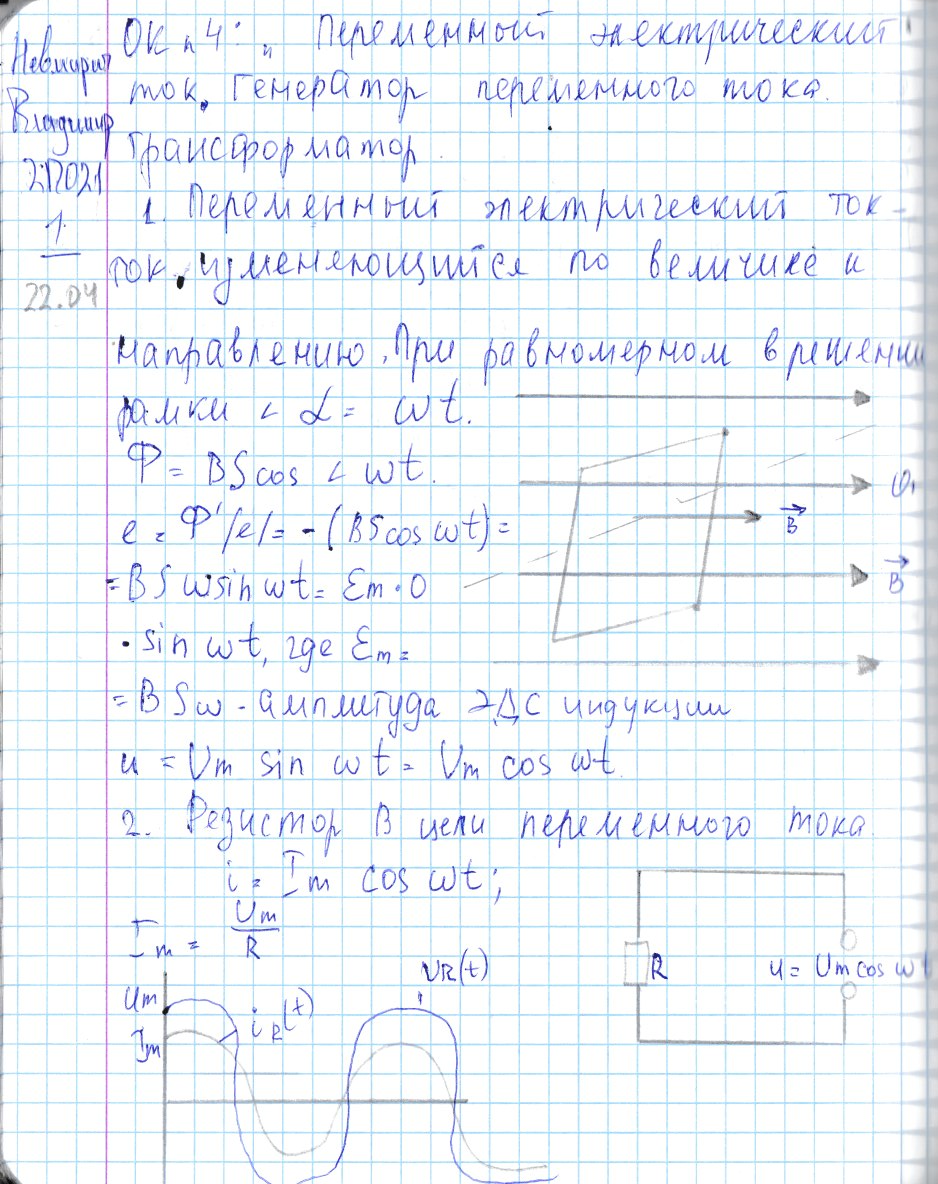 Невмирич
Владимир
2П021
1.
22.04
ОК n 4: „ Переменный электрический
ток. Генератор переменного тока.
Трансформатор.
1. Переменный электрический ток -
ток, изменяющийся по величине и
направлению. При равномерном врешении
рамки < α = ωt.
Ф = BS cos < ωt.
e = Ф'/e/= -(BS cos ωt) =
= BS ω sin ωt = Ɛm · 0
· sin ωt, где Ɛm =
= BSω - амплитуда ЭДС индукции
u = Um sin ωt = Um cos ωt
B⃗
B⃗
2. Резистор в цепи переменного тока
i = Im cos ωt;
Im = Um/R
R
u = Um cos ωt
Um
Im
iR(t)
UR(t)